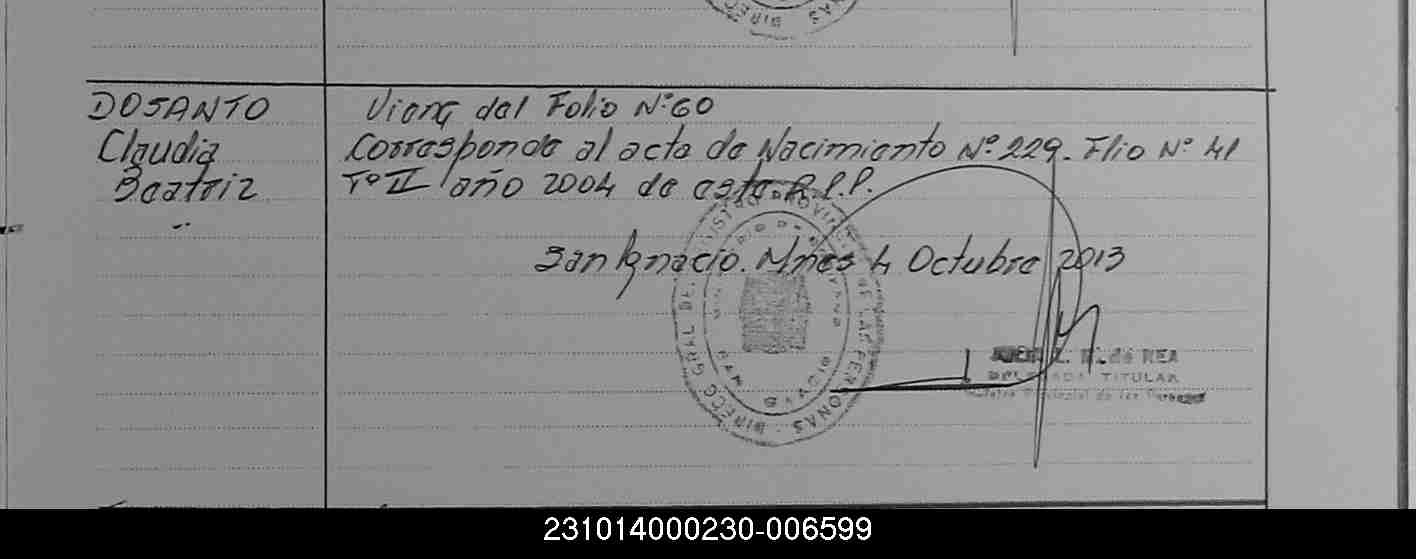 DOSANTO
Claudia
Beatriz
Viene del Folio N° 60
Corresponde al acta de Nacimiento N° 229. Flio N° 41
T° II año 2004 de esta R.P.P.
San Ignacio. Mnes 4 Octubre 2013
DIRECC GRAL DEL REGISTRO PROVINCIAL DE LAS PERSONAS
SAN IGNACIO
DE REA
DELEGADA TITULAR
Provincial de las Personas
231014000230-006599